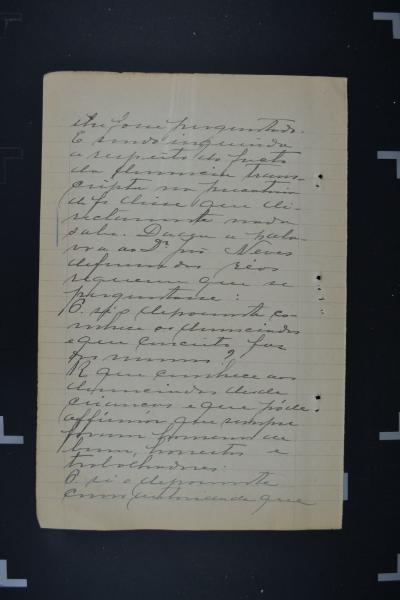 lhe fosse perguntado.
E sendo inquirida
a respeito do facto
da denuncia trans-
cripta na precatoria
de fs disse que di-
rectamente nada
sabe. Dada a pala-
vra ao Dr. Neves
defensor dos réos
requereu que se
perguntasse:
P. si o depoente co-
nhece os denunciados
e que conceito faz
dos mesmos?
R. que conhece aos
denunciados desde
crianças e que póde
affirmar que sempre
foram homens de
bem, honestos e
trabalhadores.
P. si o depoente
como autoridade que